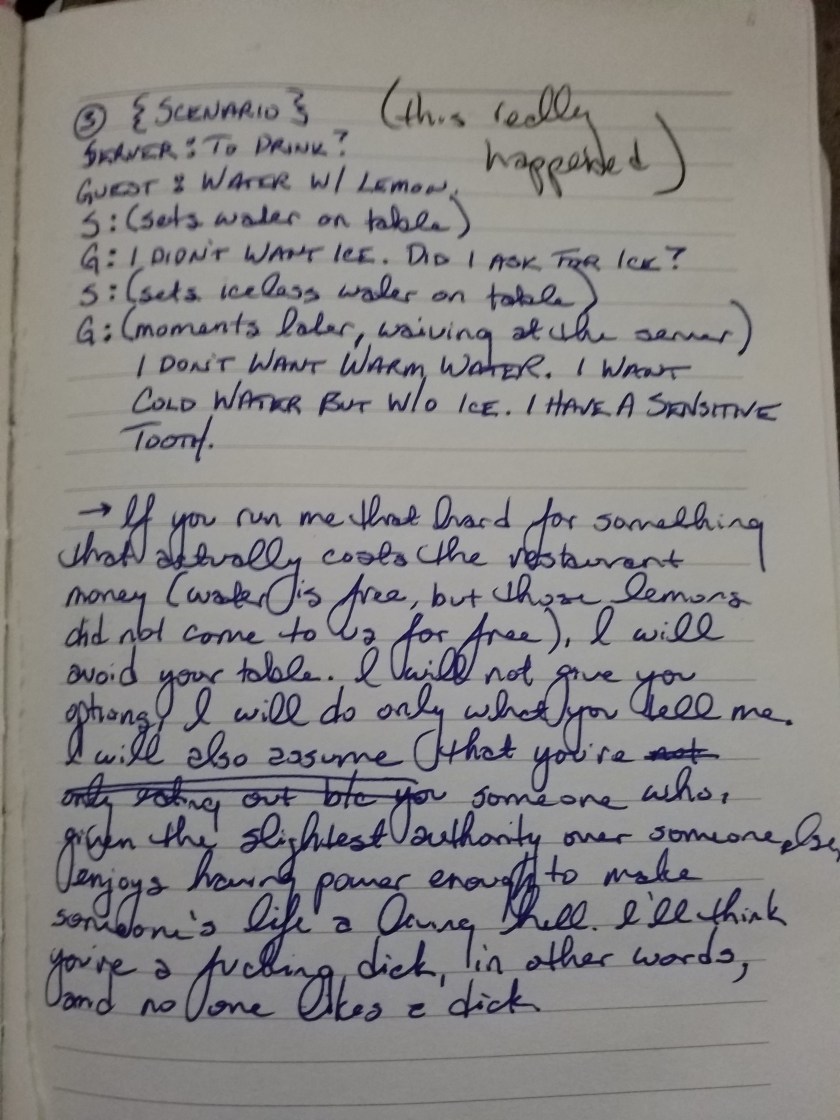 ③ {SCENARIO} (this really happended)
SERVER: TO DRINK?
GUEST: WATER W/ LEMON.
S: (sets water on table)
G: I DIDN'T WANT ICE. DID I ASK FOR ICE?
S: (sets iceless water on table)
G: (moments later, waiving at the server)
I DON'T WANT WARM WATER. I WANT
COLD WATER BUT W/O ICE. I HAVE A SENSITIVE
TOOTH.
→ If you run me that hard for something
that actually costs the restaurant
money (water is free, but those lemons
did not come to us for free), I will
avoid your table. I will not give you
options, I will do only what you tell me.
I will also assume that you're not
only eating out b/c you someone who,
given the slightest authority over someone else,
enjoys having power enough to make
someone's life a living hell. I'll think
you're a fucking dick, in other words,
and no one likes a dick